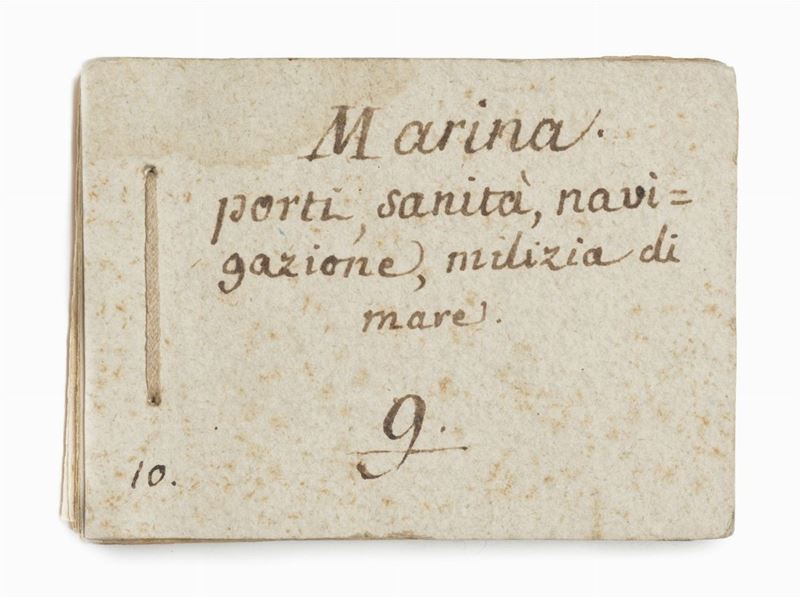 Marina.
porti, sanità, navi=
gazione, milizia di
mare.
9.
10.